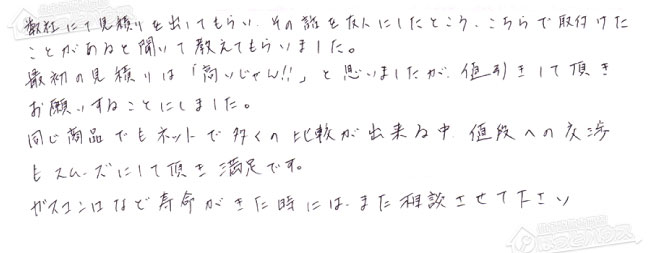 数社にて見積りを出してもらい、その話を友人にしたところ、こちらで取付けた
ことがあると聞いて教えてもらいました。
最初の見積りは「高いじゃん!!」と思いましたが、値引きして頂き
お願いすることにしました。
同じ商品でもネットで多くの比較が出来る中、値段への交渉
もスムーズにして頂き満足です。
ガスコンロなど寿命がきた時には、また相談させて下さい